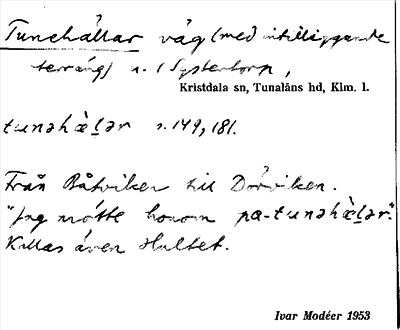 Tunehällar väg (med intilliggande
terräng) n. i Systertorp,
Kristdala sn, Tunaläns hd, Klm. l.
tunəhæ̀ḷər s. 149, 181.
Från Båtviken till Dörviken.
"Jag mötte honom pa-tunəhæ̀ḷər."
Kallas även Hultet.
Ivar Modéer 1953